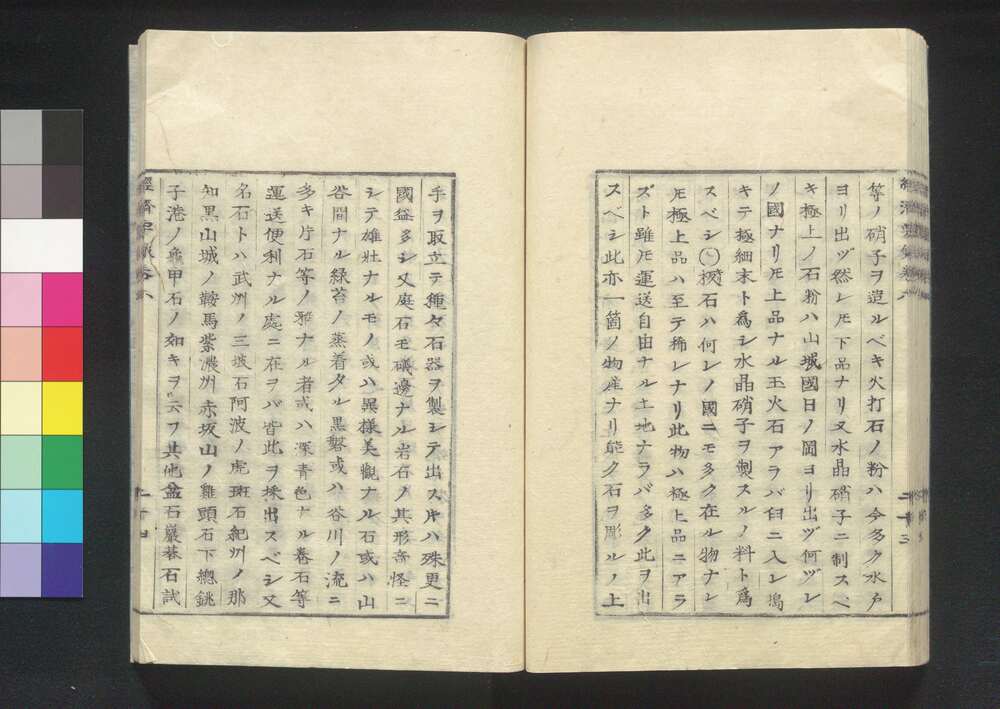 等ノ硝子ヲ造ルベキ火打石ノ粉ハ今多ク水戸
ヨリ出ヅ然レ𪜈下品ナリ又水晶硝子ニ制スベ
キ極上ノ石粉ハ山城國日ノ岡ヨリ出ヅ何ヅレ
ノ國ナリ𪜈上品ナル玉火石アラバ臼ニ入レ搗
キテ極細末ト爲シ水晶硝子ヲ製スルノ料ト爲
スベシ○ 石ハ何レノ國ニモ多ク在ル物ナレ
𪜈極上品ハ至テ稀レナリ此物ハ極上品ニアラ
ズト雖𪜈運送自由ナル土地ナラバ多ク此ヲ出
スベシ此亦一箇ノ物産ナリ能ク石ヲ彫ルノ上
二十三
手ヲ取立テ種々石器ヲ製シテ出ス片ハ殊更ニ
國益多シ又庭石モ礒邊ナル岩石ノ其形奇怪ニ
シテ雄壯ナルモノ或ハ異樣美觀ナル石或ハ山
谷間ナル緑苔ノ蒸着タル黒磐或ハ谷川ノ流ニ
多キ片石等ノ雅ナル者或ハ深青色ナル巻石等
運送便利ナル處ニ在ヲバ皆此ヲ採出スベシ又
名石トハ武州ノ三坡石阿波ノ虎斑石紀州ノ那
知黒山城ノ鞍馬紫濃州赤坂山ノ雞頭石下總銚
子港ノ龜甲石ノ如キヲ云フ其他盆石巖碁石試
二十四